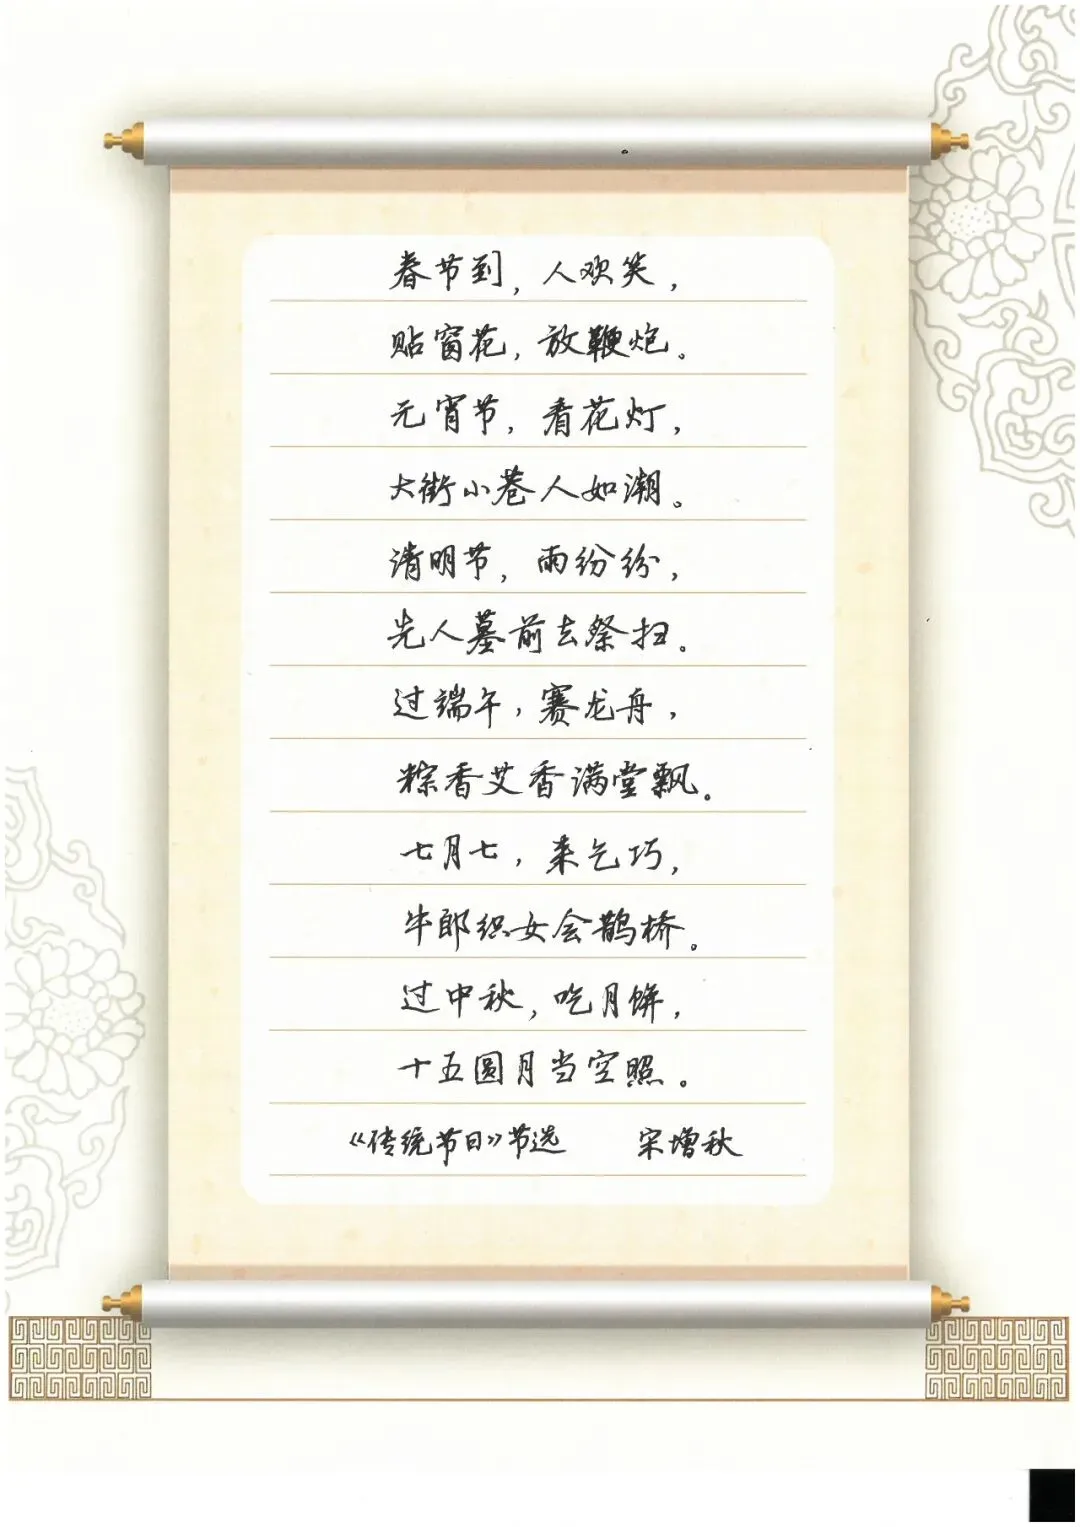 春节到，人欢笑，
贴窗花，放鞭炮。
元宵节，看花灯，
大街小巷人如潮。
清明节，雨纷纷，
先人墓前去祭扫。
过端午，赛龙舟，
粽香艾香满堂飘。
七月七，来乞巧，
牛郎织女会鹊桥。
过中秋，吃月饼，
十五圆月当空照。
《传统节日》节选 宋增秋